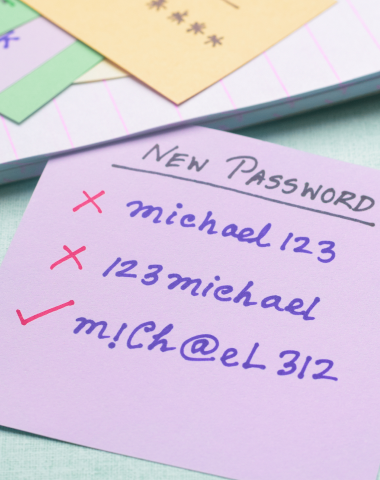 ****
K
NEW PASSWORD
michael 123
123michael
m!Ch@eL 312